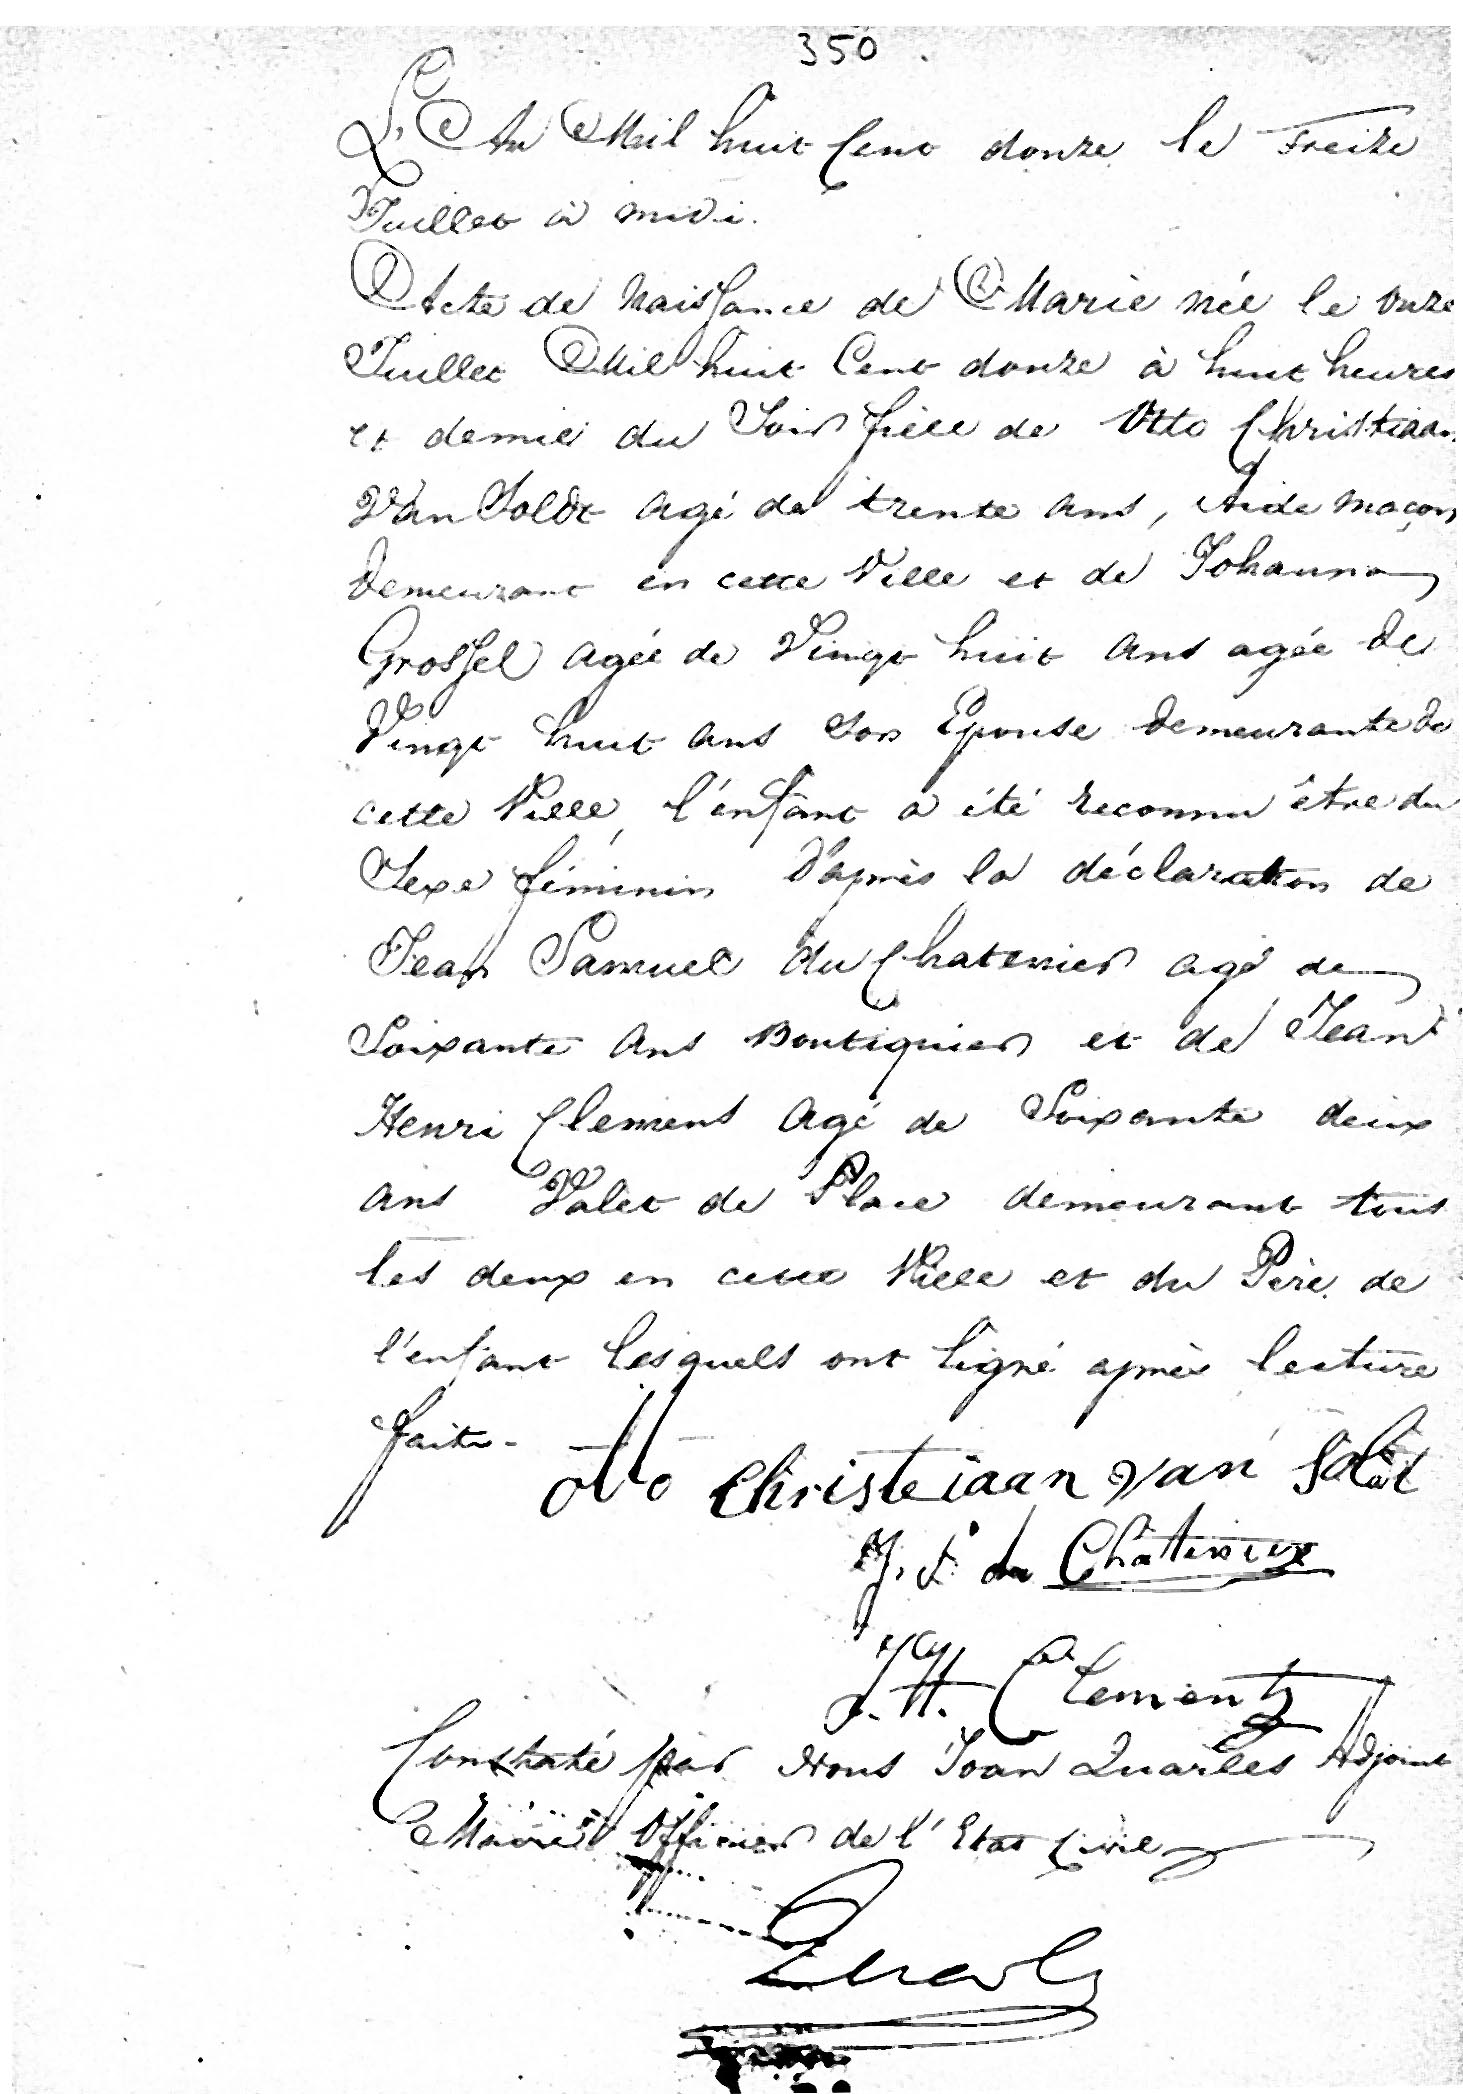 350
L'An Mil huit Cent douze le Treize
Juillet à midi.
Acte de Naissance de Marie née le onze
Juillet Mil huit Cent douze à huit heures
et demie du Soir fille de Otto Christiaan
Van Soldt agé de trente ans, Aide maçon
Demeurant en cette Ville et de Johanna
Grossel agée de Vingt huit ans agée de
Vingt huit ans son Epouse demeurante de
cette Ville, l'enfant a été reconnu être du
Sexe féminin D'après la déclaration de
Jean Samuel du Chatenier agé de
Soixante ans Boutiquier et de Jean
Henri Clemens agé de Soixante deux
ans Valet de Place demeurant tous
les deux en cette Ville et du Père de
l'enfant lesquels ont signé après lecture
faite -
Otto Christeiaan van Soldt
J. S. du Châtinier
J. H. Clementz
Constaté par Nous Joan Quarles Adjoint
Maire Officier de l'Etat Civil
Quarles